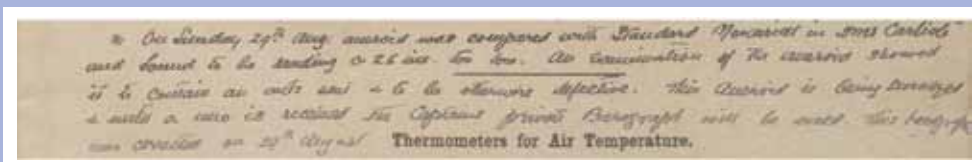 * On Sunday 29th Aug. aneroid was compared with Standard Mercurial in HMS Carlisle
and found to be reading 0.26 ins. too low. An examination of the aneroid showed
it to contain an and to be otherwise defective. This Aneroid is being
& until a new is received the Captain's private Barograph will be used. This barograph
was corrected on 29th August Thermometers for Air Temperature.